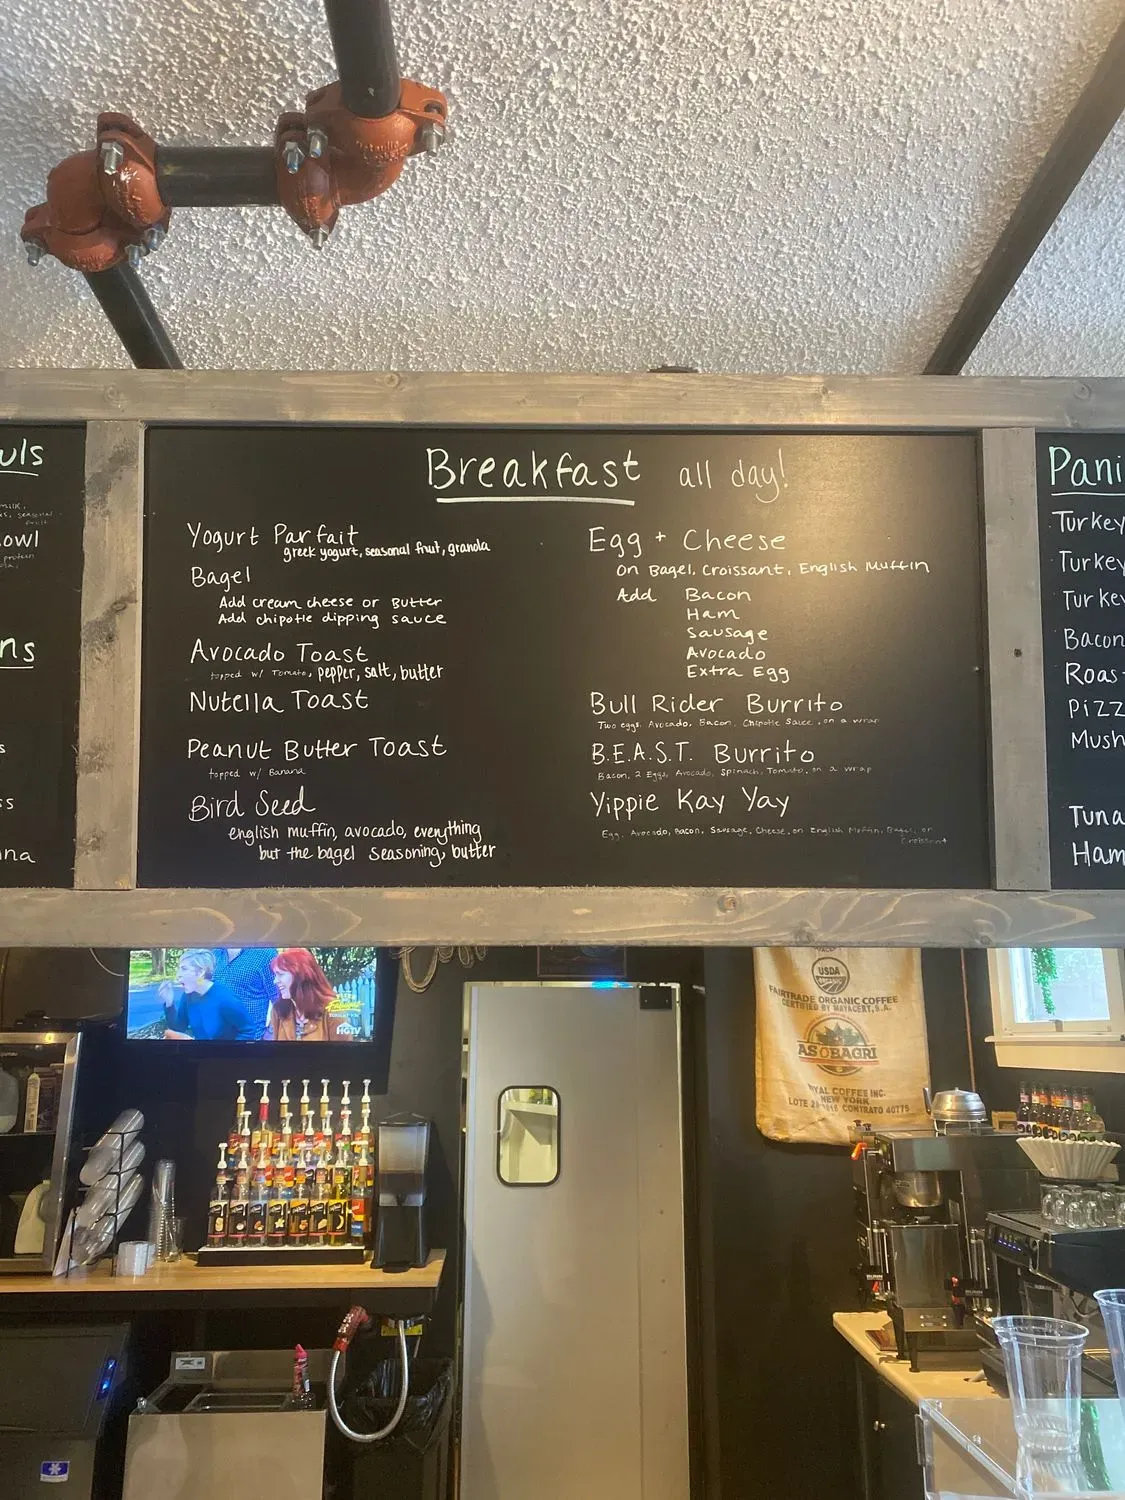 Breakfast all day!
Yogurt Parfait
greek yogurt, seasonal fruit, granola
Bagel
Add cream cheese or Butter
Add chipotle dipping sauce
Avocado Toast
topped w/ Tomato, pepper, salt, butter
Nutella Toast
Peanut Butter Toast
topped w/ Banana
Bird Seed
english muffin, avocado, everything
but the bagel seasoning, butter
Egg + Cheese
on Bagel, Croissant, English Muffin
Add Bacon
Ham
Sausage
Avocado
Extra Egg
Bull Rider Burrito
Two eggs, Avocado, Bacon, Chipotle Sauce, on a wrap
B.E.A.S.T. Burrito
Bacon, 2 Eggs, Avocado, Spinach, Tomato, on a wrap
Yippie Kay Yay
Egg, Avocado, Bacon, Sausage, Cheese, on English Muffin, Bagel, or
Croissant
uls
seasonal
fruit
owl
protein
ns
s
ss
na
Pani
Turkey
Turkey
Turkey
Bacon
Roas
Pizz
Mush
Tuna
Ham
HGTV
USDA
FAIRTRADE ORGANIC COFFEE
CERTIFIED BY MAYACERT, S.A.
ASOBAGRI
ROYAL COFFEE INC.
NEW YORK
CONTRATO 40775